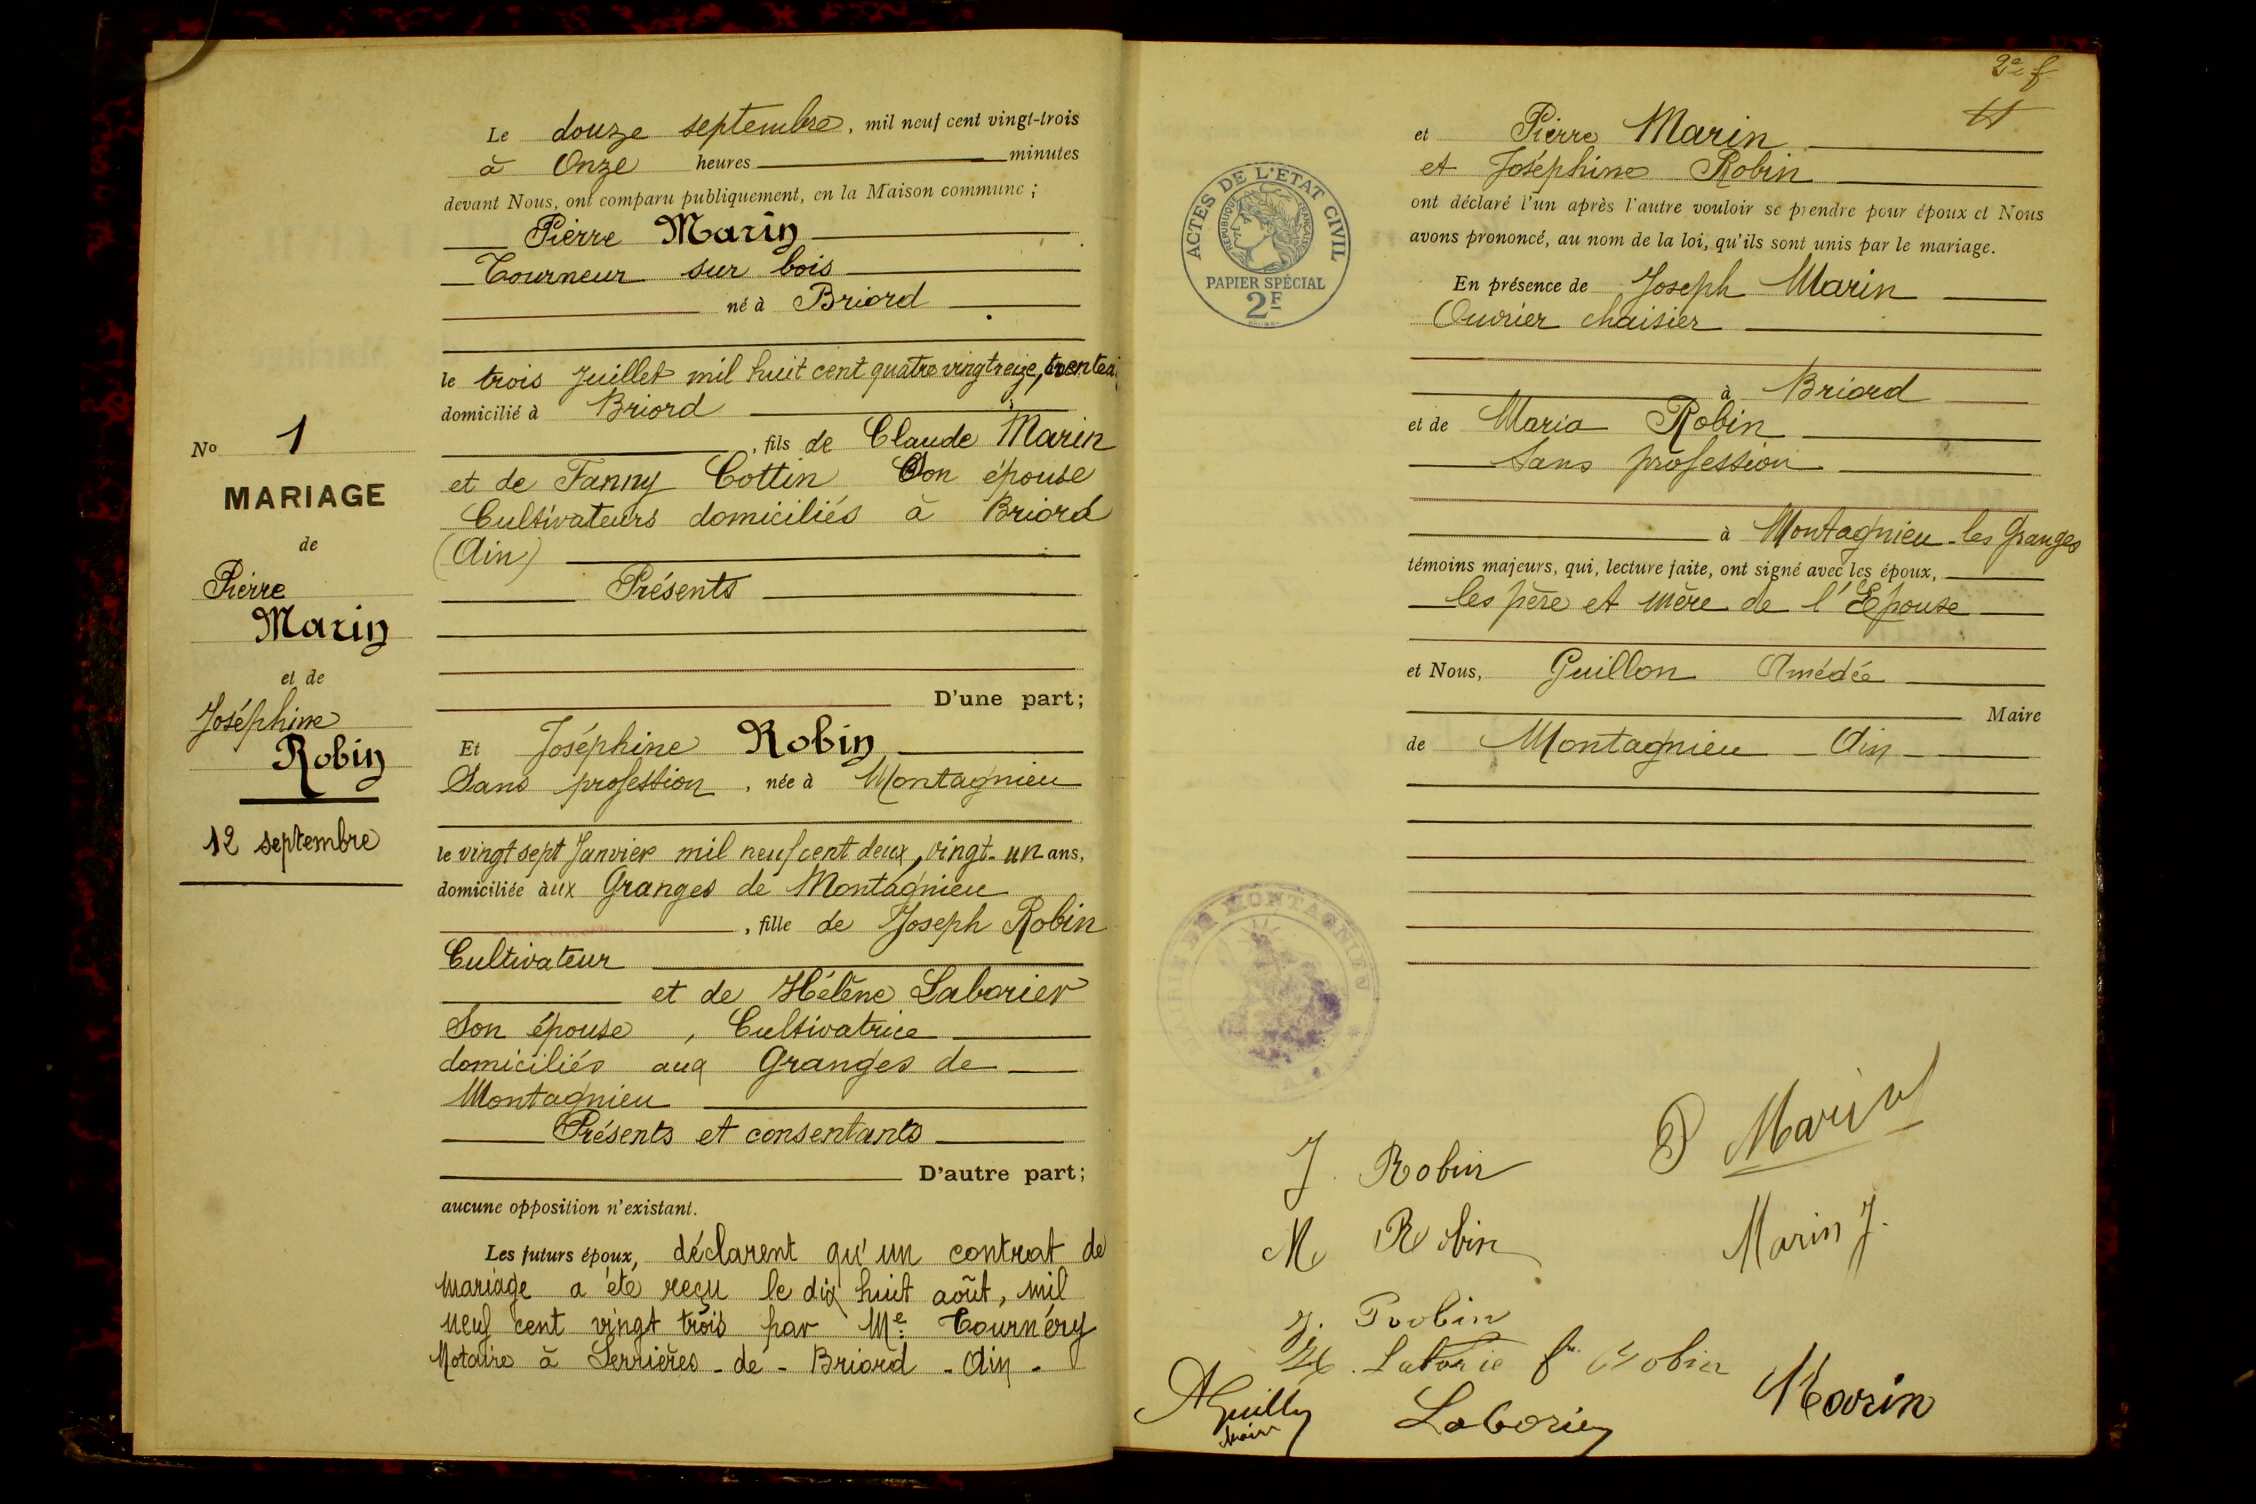 Le douze septembre, mil neuf cent vingt-trois
à Onze heures minutes
devant Nous, ont comparu publiquement, en la Maison commune ;
Pierre Marin
Tourneur sur bois
né à Briord
le trois Juillet mil huit cent quatre vingt treize, trente a
domicilié à Briord
, fils de Claude Marin
et de Fanny Cottin Son épouse
Cultivateurs domiciliés à Briord
(Ain)
Présents
D'une part;
Et Joséphine Robin
Sans profession, née à Montagnieu
le vingt sept Janvier mil neuf cent deux, vingt-un ans,
domiciliée aux Granges de Montagnieu
, fille de Joseph Robin
Cultivateur
et de Hélène Laborier
Son épouse, Cultivatrice
domiciliés aux Granges de
Montagnieu
Présents et consentants
D'autre part;
aucune opposition n'existant.
Les futurs époux, déclarent qu'un contrat de
mariage a été reçu le dix huit août, mil
neuf cent vingt trois par Me Tournéry
Notaire à Serrières-de-Briord-Ain-
No 1
MARIAGE
de
Pierre
Marin
et de
Joséphine
Robin
12 septembre
2e f
et Pierre Marin
et Joséphine Robin
ont déclaré l'un après l'autre vouloir se prendre pour époux et Nous
avons prononcé, au nom de la loi, qu'ils sont unis par le mariage.
En présence de Joseph Marin
Ouvrier chaisier
à Briord
et de Maria Robin
Sans profession
à Montagnieu-les Granges
témoins majeurs, qui, lecture faite, ont signé avec les époux,
les père et mère de l'Epouse
et Nous, Guillon Amédée
Maire
de Montagnieu - Ain -
ACTES DE L'ETAT CIVIL
REPUBLIQUE FRANÇAISE
PAPIER SPÉCIAL
2F
MAIRIE DE MONTAGNIEU
AIN
P Marin
J. Robin
M Robin
Marin J.
J. Robin
H. Laborie f Robin
Marin
Laborier
AGuillon
Maire